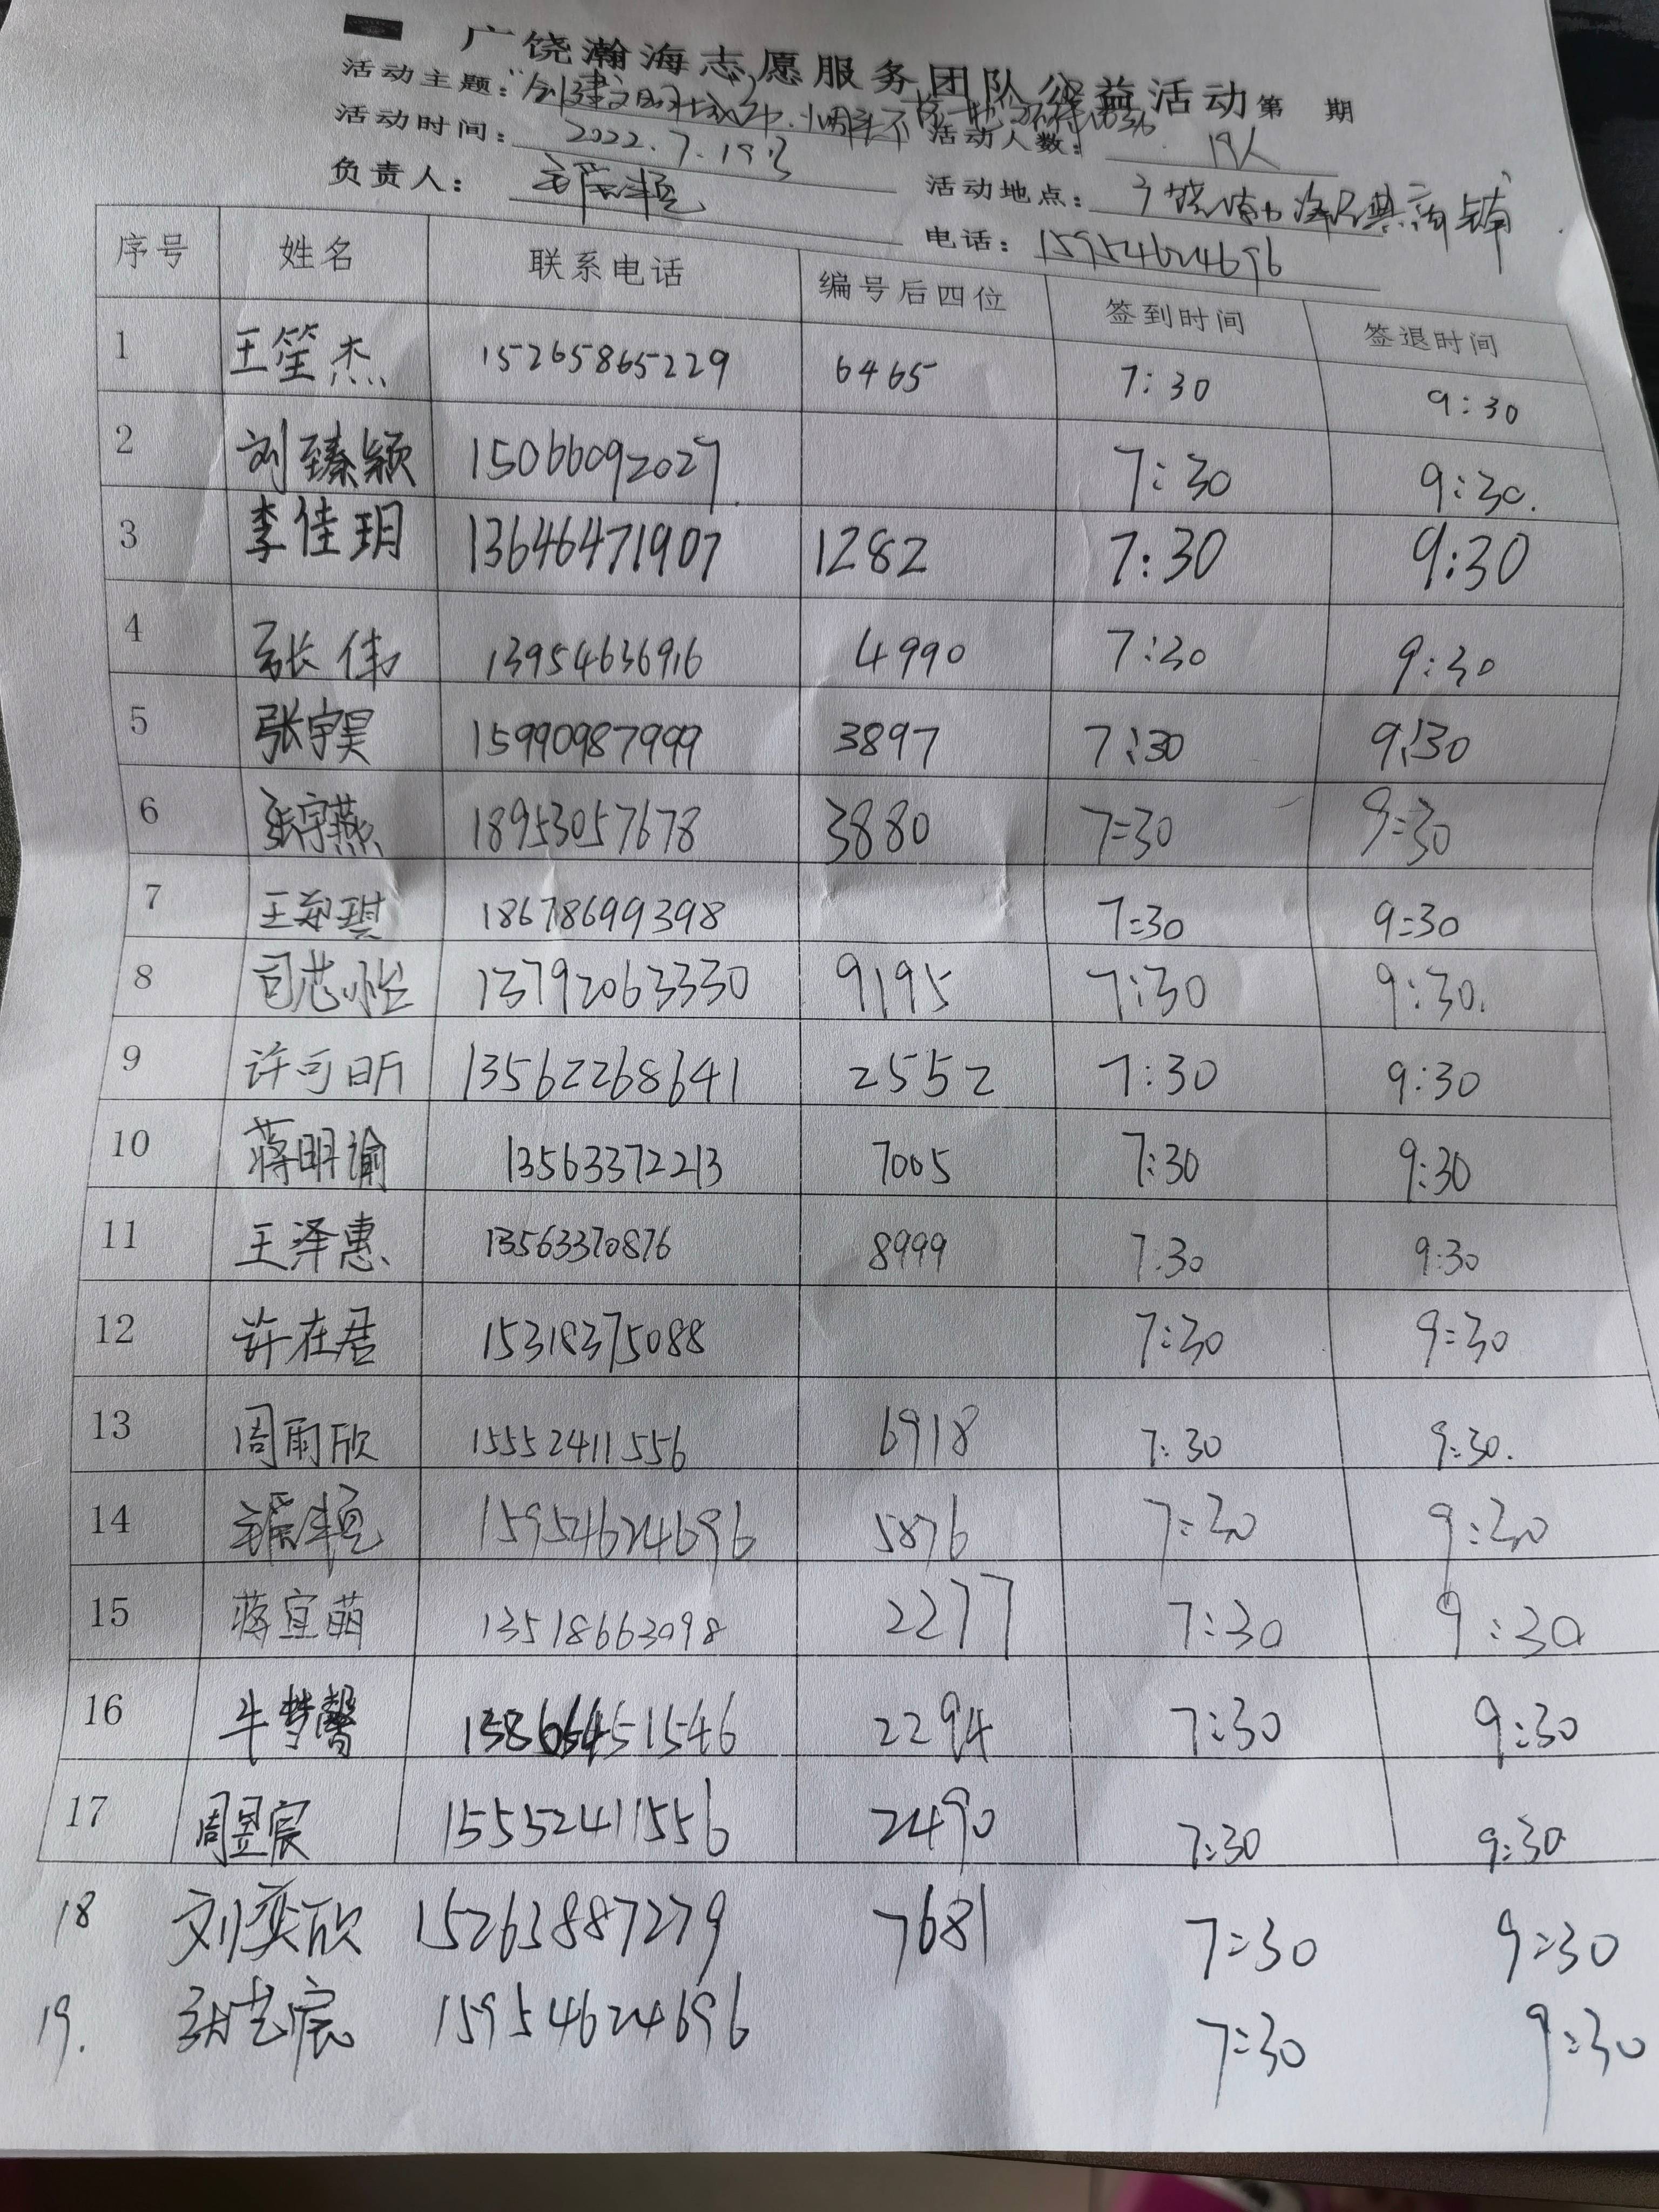 广饶瀚海志愿服务团队公益活动第 期
活动主题:"创建文明城市.烟头不落地
活动时间: 2022.7.19号 活动人数: 19人
负责人: 活动地点: 广饶
电话: 15954624696
序号 姓名 联系电话 编号后四位 签到时间 签退时间
1 王笙杰 15265865229 6465 7:30 9:30
2 刘臻颖 15066092027. 7:30 9:30.
3 李佳玥 13646471907 1282 7:30 9:30
4 张伟 13954636916 4990 7:30 9:30
5 张宇昊 15990987999 3897 7:30 9:30
6 张宇燕 18953057678 3880 7:30 9:30
7 王 琪 18678699398 7:30 9:30
8 司芯怡 13792063330 9195 7:30 9:30.
9 许可昕 13562268641 2552 7:30 9:30
10 蒋明谕 13563372213 7005 7:30 9:30
11 王泽惠 13563370876 8999 7:30 9:30
12 许在君 15318375088 7:30 9:30
13 周雨欣 15552411556 6918 7:30 9:30.
14 15954624696 5876 7:30 9:30
15 蒋宜萌 13518663098 2277 7:30 9:30
16 牛梦馨 2294 7:30 9:30
17 周昱宸 15552411556 2490 7:30 9:30
18 刘奕欣 15263887279 7681 7:30 9:30
19. 艺宸 15954624696 7:30 9:30